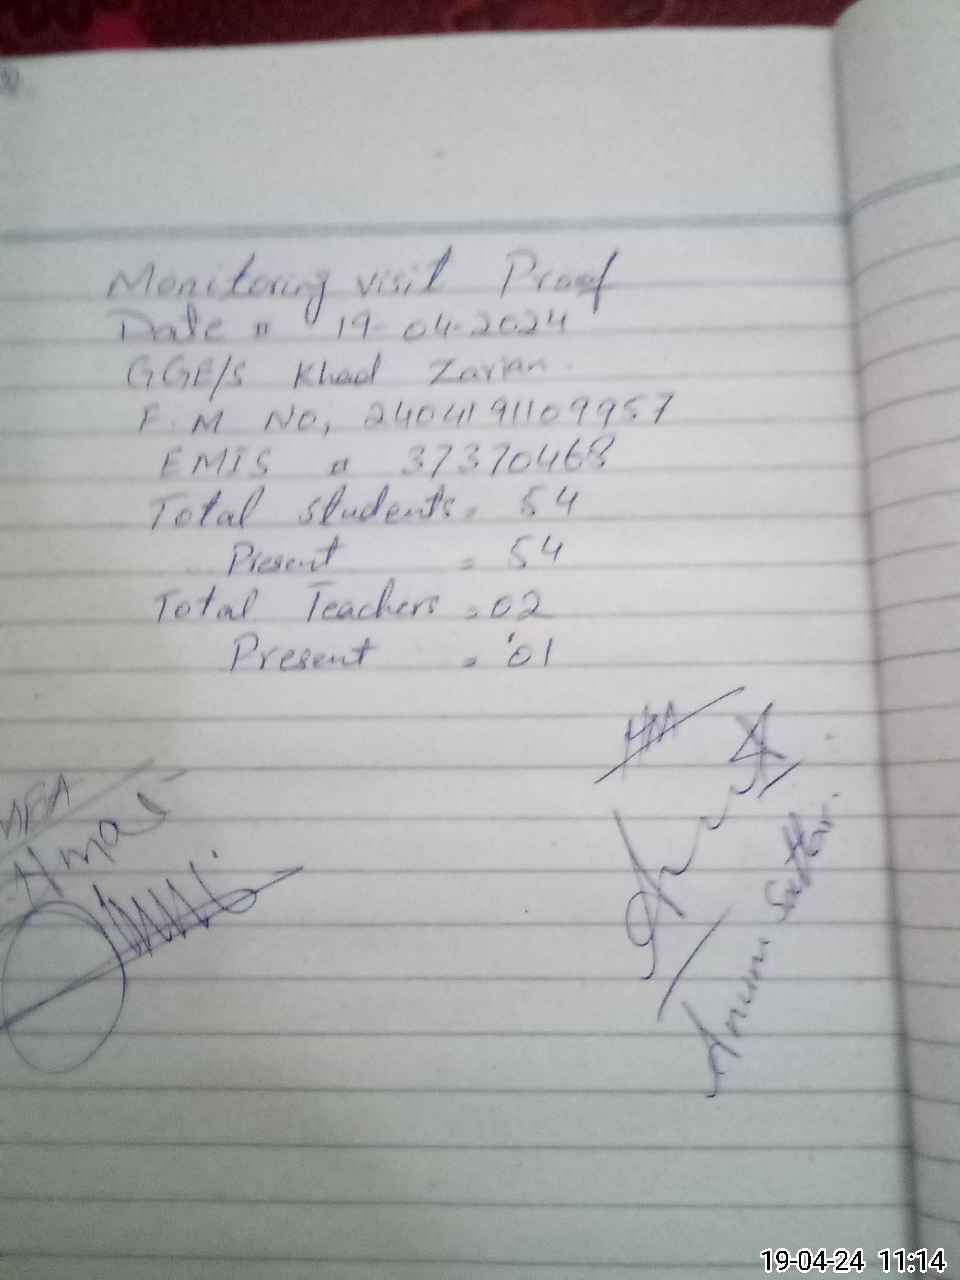 Monitoring visit Proof
Date " 19-04-2024
GGE/S Khad Zarian.
F.M No, 2404191109957
EMIS " 37370468
Total students = 54
Present = 54
Total Teachers = 02
Present = 01
Anum Sattar
19-04-24 11:14